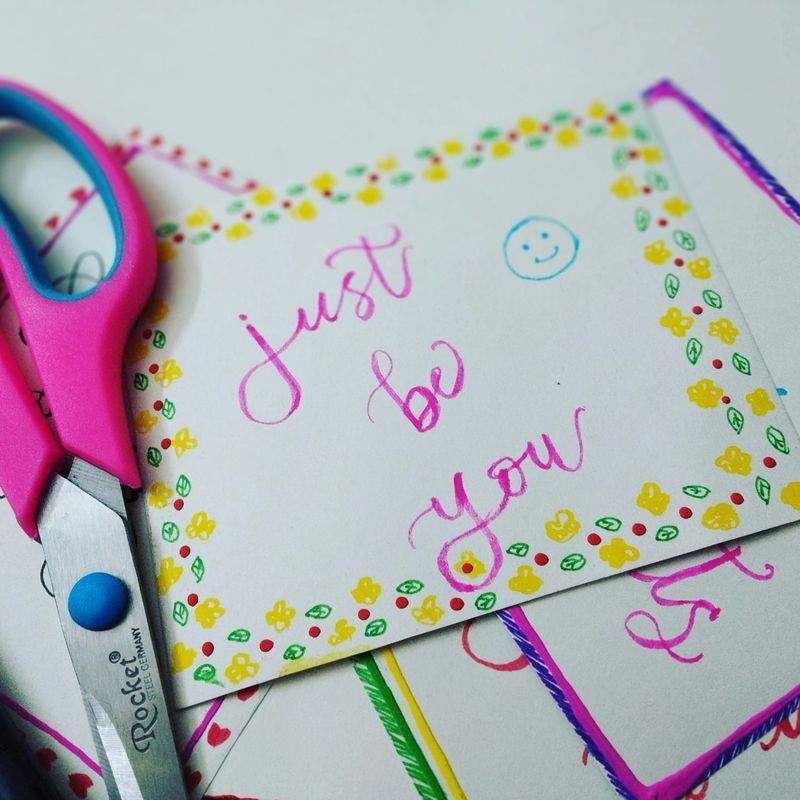 just
be
you
Rocket®
STEEL GERMANY